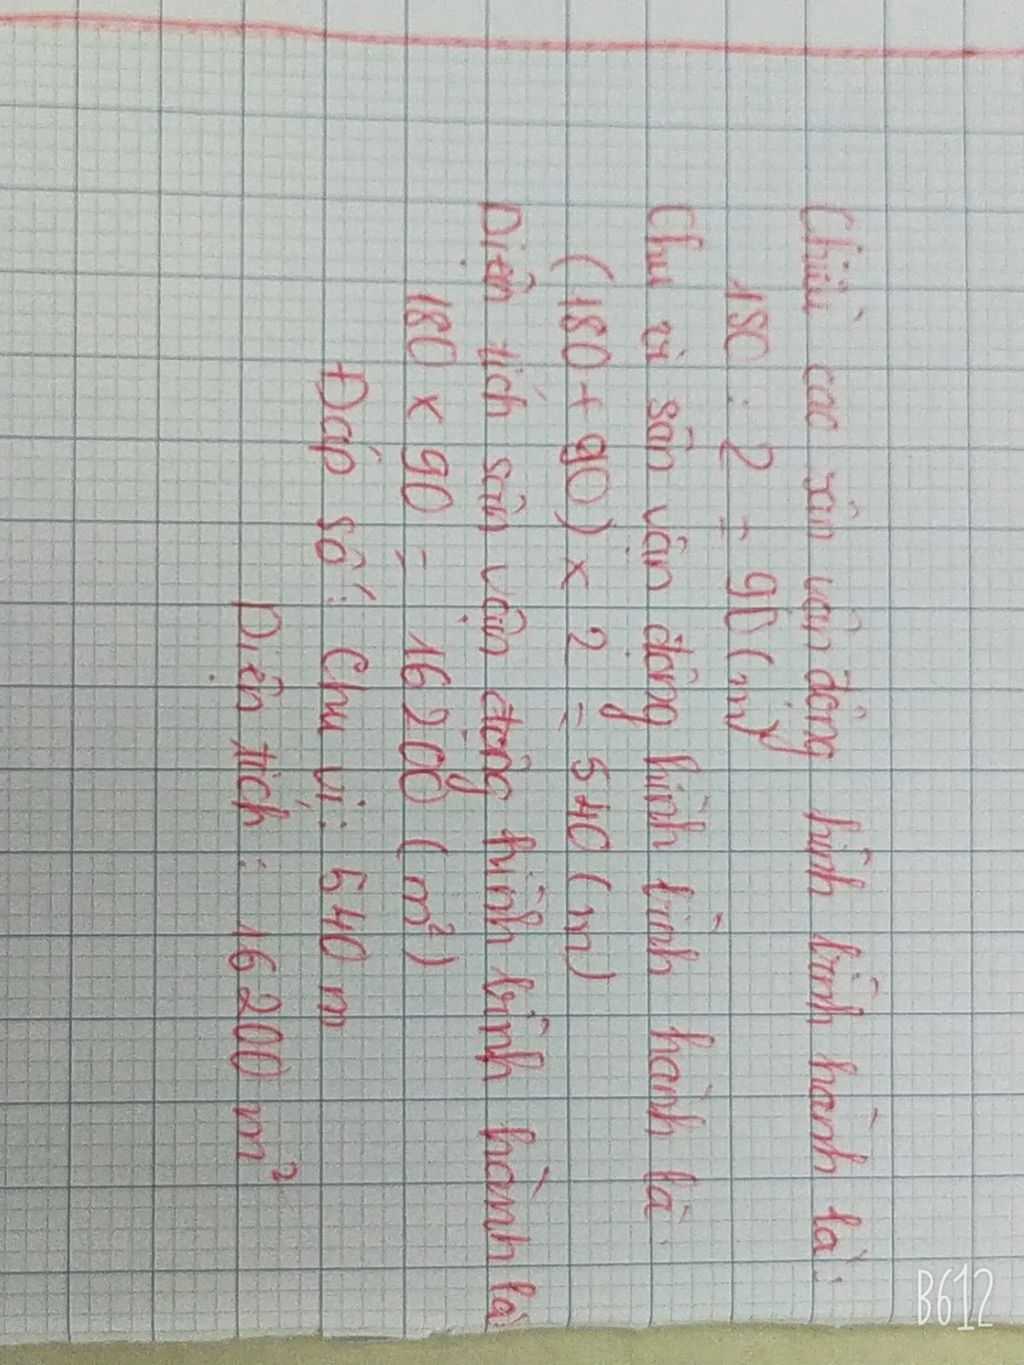 Chiều cao sân vận động hình bình hành là:
180 : 2 = 90 (m)
Chu vi sân vận động hình bình hành là
(180 + 90) x 2 = 540 (m)
Diện tích sân vận động hình bình hành là
180 x 90 = 16200 (m²)
Đáp số: Chu vi: 540 m
Diện tích : 16200 m²
B612